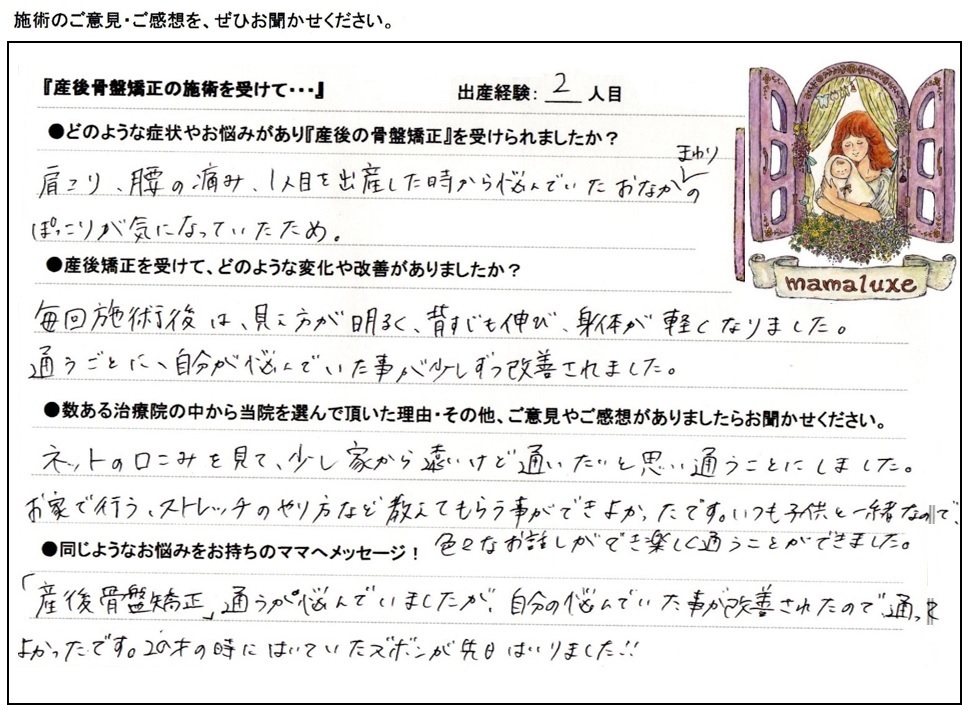 施術のご意見・ご感想を、ぜひお聞かせください。
『産後骨盤矯正の施術を受けて・・・』 出産経験： 2 人目
●どのような症状やお悩みがあり『産後の骨盤矯正』を受けられましたか？
まわり
肩こり、腰の痛み、1人目を出産した時から悩んでいたおなかの
ぽっこりが気になっていたため。
●産後矯正を受けて、どのような変化や改善がありましたか？
mamaluxe
毎回施術後は、見え方が明るく、背すじも伸び、身体が軽くなりました。
通うごとに、自分が悩んでいた事が少しずつ改善されました。
●数ある治療院の中から当院を選んで頂いた理由・その他、ご意見やご感想がありましたらお聞かせください。
ネットの口こみを見て、少し家から遠いけど通いたいと思い通うことにしました。
お家で行う、ストレッチのやり方など教えてもらう事ができよかったです。いつも子供と一緒なので、
●同じようなお悩みをお持ちのママへメッセージ！ 色々なお話しができ楽しく通うことができました。
「産後骨盤矯正」通うか悩んでいましたが、自分の悩んでいた事が改善されたので、通って
よかったです。20才の時にはいていたズボンが先日はいりました!!